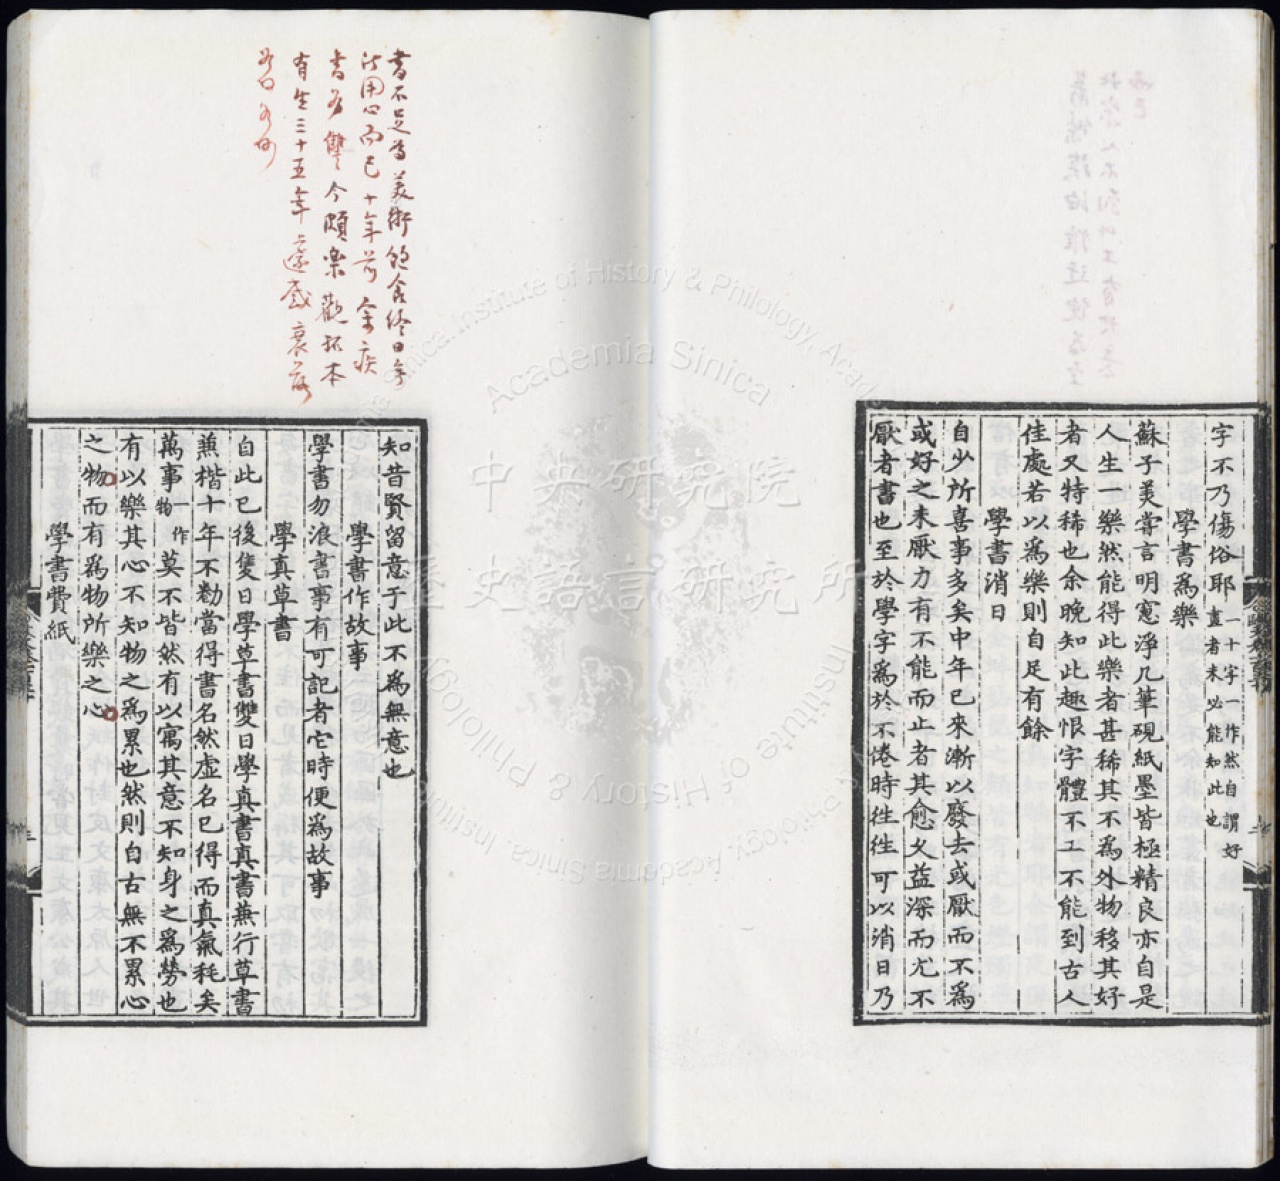 字不乃傷俗耶一十字一作然自謂好畫者未必能知此也
學書為樂
蘇子美嘗言明窻淨几筆硯紙墨皆極精良亦自是
人生一樂然能得此樂者甚稀其不為外物移其好
者又特稀也余晚知此趣恨字體不工不能到古人
佳處若以為樂則自足有餘
學書消日
自少所喜事多矣中年已來漸以廢去或厭而不為
或好之未厭力有不能而止者其愈久益深而尤不
厭者書也至於學字為於不倦時往往可以消日乃
知昔賢留意于此不為無意也
學書作故事
學書勿浪書事有可記者它時便為故事
學真草書
自此已後隻日學草書雙日學真書真書兼行草書
兼楷十年不勌當得書名然虛名已得而真氣耗矣
萬事一作物莫不皆然有以寓其意不知身之為勞也
有以樂其心不知物之為累也然則自古無不累心
之物而有為物所樂之心
學書費紙
書不足為美術飽食終日無
所用心而已十年前余疾
書為讎今頗樂觀拓本
有生三十五年遽感衰落
中央研究院
歷史語言研究所
Academia Sinica
Institute of History & Philology, Academia Sinica